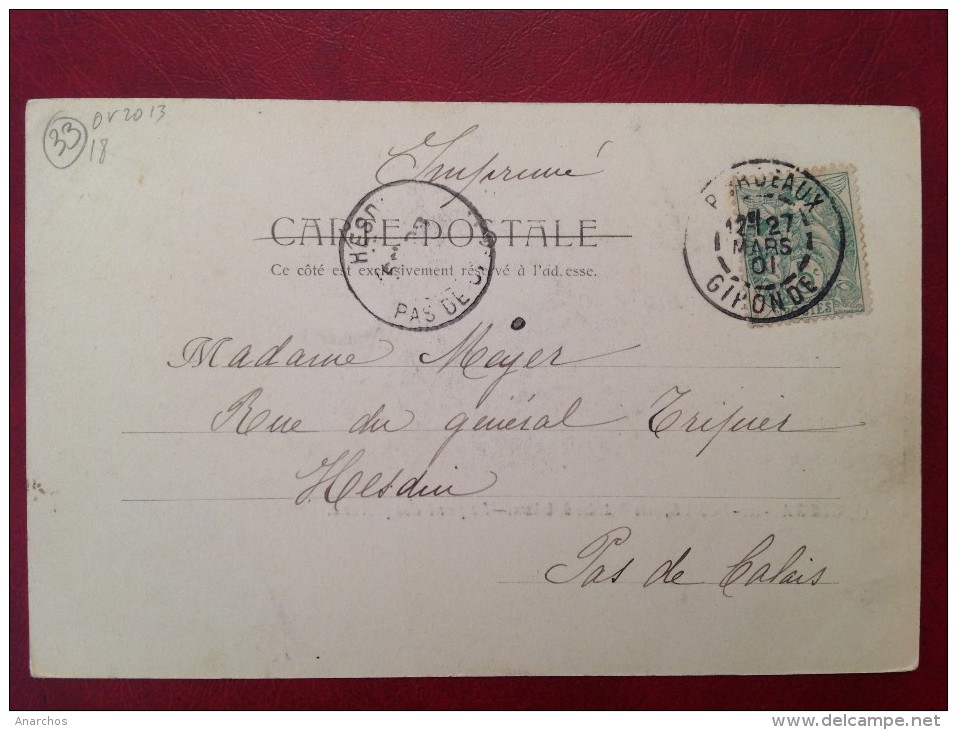 33
18
Imprimé
CARTE POSTALE
Ce côté est exclusivement réservé à l'adresse.
HESD
PAS DE
BORDEAUX
27
MARS
01
GIRONDE
Madame Mayer
Rue du général Tripier
Hesdin
Pas de Calais
Anarchos
http://www.delcampe.net